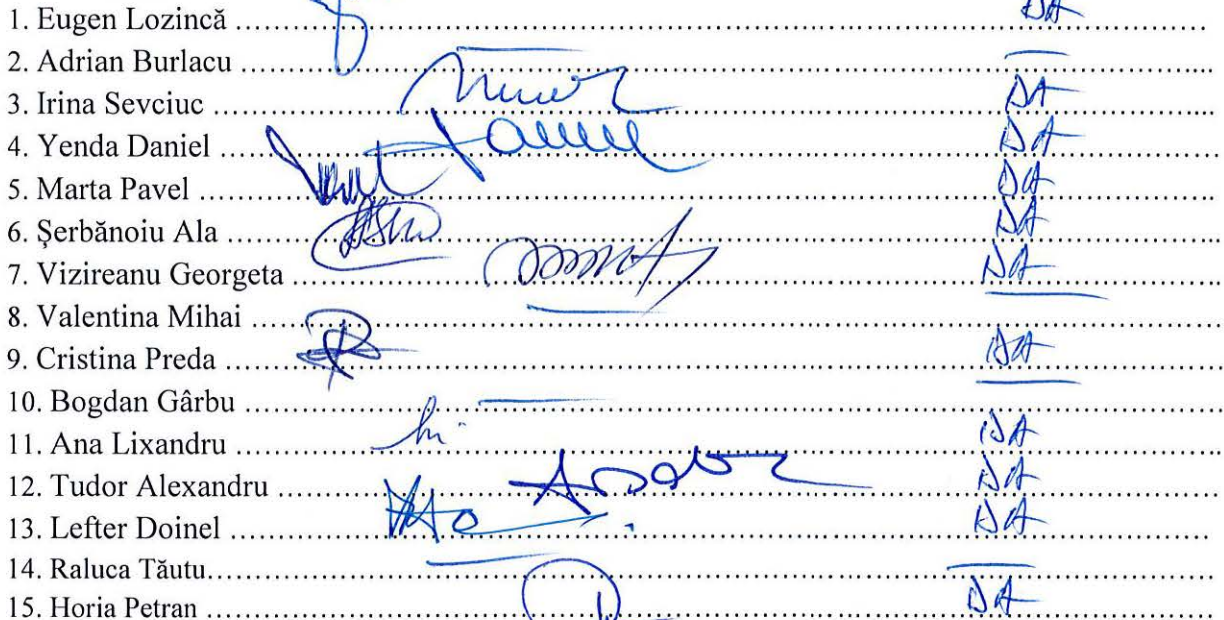 1. Eugen Lozincă ........ DA
2. Adrian Burlacu ........ —
3. Irina Sevciuc ........ DA
4. Yenda Daniel ........ DA
5. Marta Pavel ........ DA
6. Șerbănoiu Ala ........ DA
7. Vizireanu Georgeta ........ DA
8. Valentina Mihai ........ —
9. Cristina Preda ........ DA
10. Bogdan Gârbu ........ —
11. Ana Lixandru ........ DA
12. Tudor Alexandru ........ DA
13. Lefter Doinel ........ DA
14. Raluca Tăutu ........ —
15. Horia Petran ........ DA